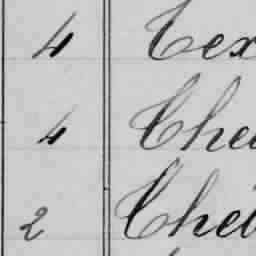 4 Tex
4 Che
2 Chel